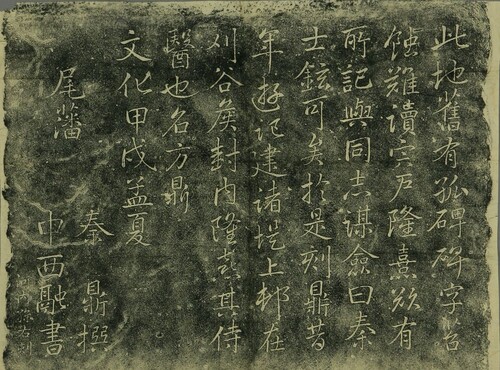 此地舊有孤碑碑字苔
蝕難讀宍戸隆熹欲有
所記與同志謀僉曰秦
士鉉可矣於是刻鼎昔
年遊記建諸堤上邨在
刈谷矦封內隆熹其侍
醫也名方鼎
文化甲戌孟夏
尾藩
秦鼎撰
中西融書